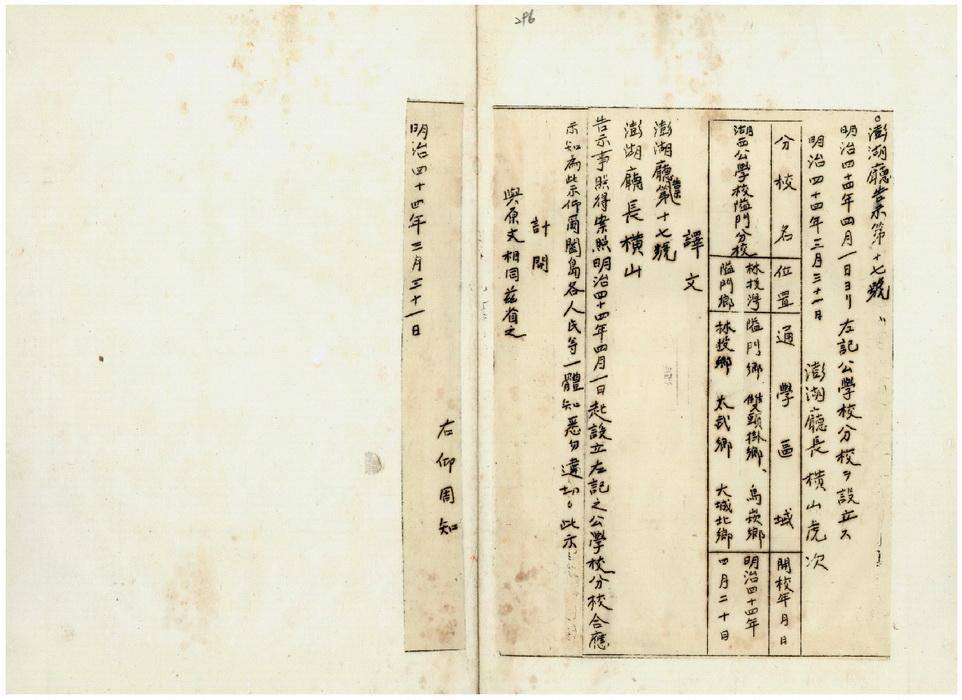 296
澎湖廳告示第十七號
明治四十四年四月一日ヨリ左記公學校分校ヲ設立ス
明治四十四年三月三十一日
澎湖廳長 橫山虎次
分校名 位置 通學區域 開校年月日
湖西公學校隘門分校
林投灣 隘門鄉
隘門鄉、雙頭掛鄉、烏崁鄉
林投鄉 太武鄉 大城北鄉
明治四十四年
四月二十日
譯文
澎湖廳告示第十七號
澎湖廳長橫山
告示事照得案照明治四十四年四月一日起設立左記之公學校分校合應
示知為此示仰闔島各人民等一體知悉勿違切。此示
計開
與原文相同茲省之
明治四十四年三月三十一日
右仰周知